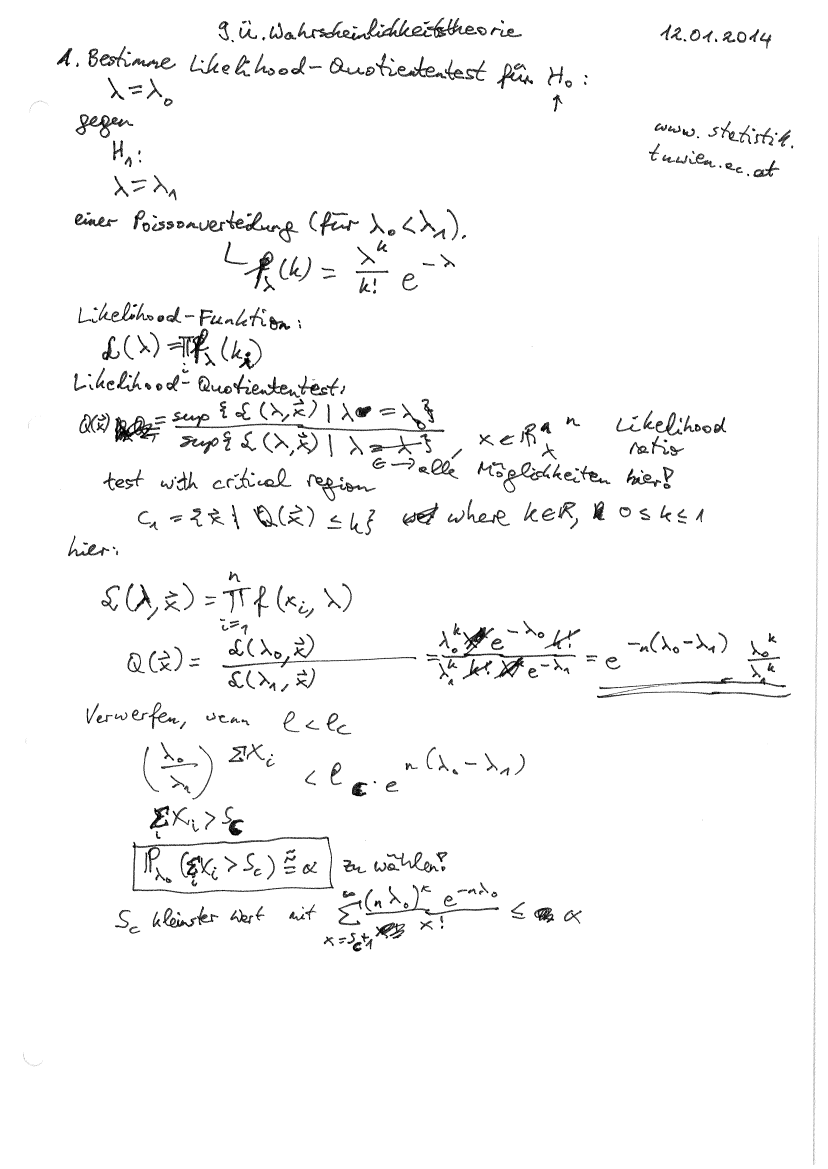 9. Ü. Wahrscheinlichkeitstheorie 12.01.2014
1. Bestimme Likelihood-Quotiententest für H₀:
↑
λ = λ₀
gegen
www.statistik.
tuwien.ac.at
H₁:
λ = λ₁
einer Poissonverteilung (für λ₀ < λ₁).
f_λ(k) = λ^k / k! e^(-λ)
Likelihood-Funktion:
L(λ) = ∏_i f_λ(k_i)
Likelihood-Quotiententest:
Q(x⃗) = sup{L(λ,x⃗) | λ = λ₀} / sup{L(λ,x⃗) | λ = λ}, x ∈ ℝ^n Likelihood
ratio
∈ → alle Möglichkeiten hier!
test with critical region
C₁ = {x⃗ | Q(x⃗) ≤ k} where k∈ℝ, 0 ≤ k ≤ 1
hier:
L(λ,x⃗) = ∏_{i=1}^n f(x_i, λ)
Q(x⃗) = L(λ₀,x⃗) / L(λ₁,x⃗) = λ₀^k e^(-λ₀) k! / λ₁^k k! e^(-λ₁) = e^(-n(λ₀-λ₁)) λ₀^k / λ₁^k
Verwerfen, wenn l < l_c
(λ₀/λ₁)^(Σx_i) < l_c · e^(n(λ₀-λ₁))
Σ_i x_i > S_c
P_λ₀(Σ_i x_i > S_c) ≅ α zu wählen!
S_c kleinster Wert mit Σ_{x=S_c+1}^∞ (nλ₀)^x e^(-nλ₀) / x! ≤ α